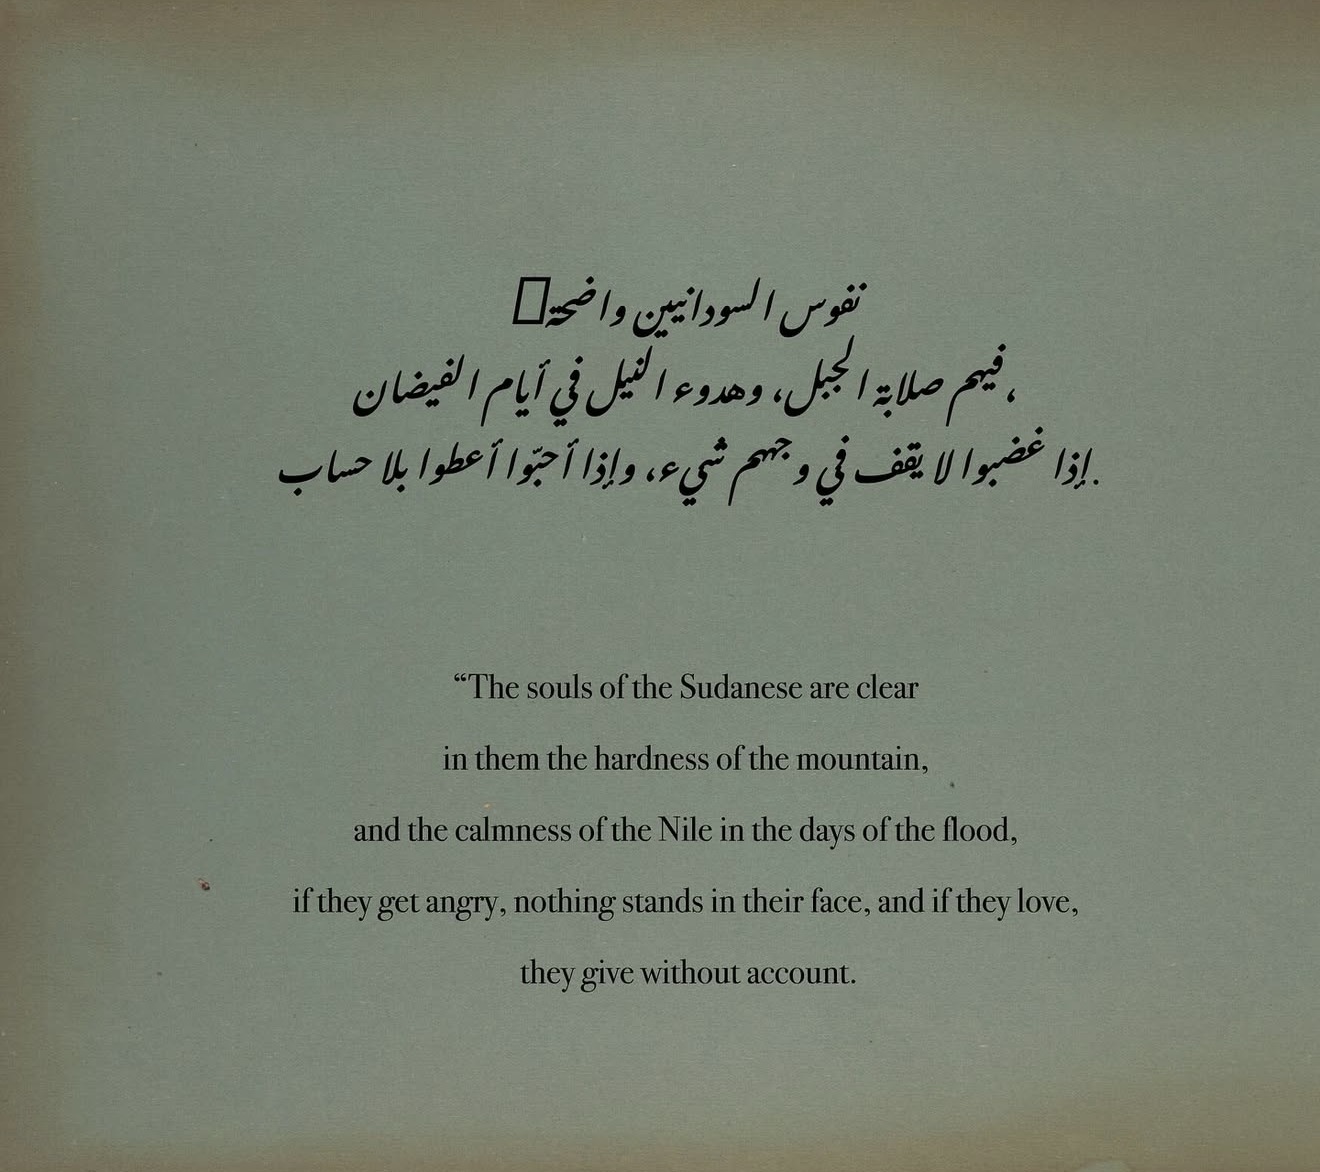 نفوس السودانيين واضحة
،فيهم صلابة الجبل، وهدوء النيل في أيام الفيضان
.إذا غضبوا لا يقف في وجههم شيء، وإذا أحبّوا أعطوا بلا حساب
“The souls of the Sudanese are clear
in them the hardness of the mountain,
and the calmness of the Nile in the days of the flood,
if they get angry, nothing stands in their face, and if they love,
they give without account.